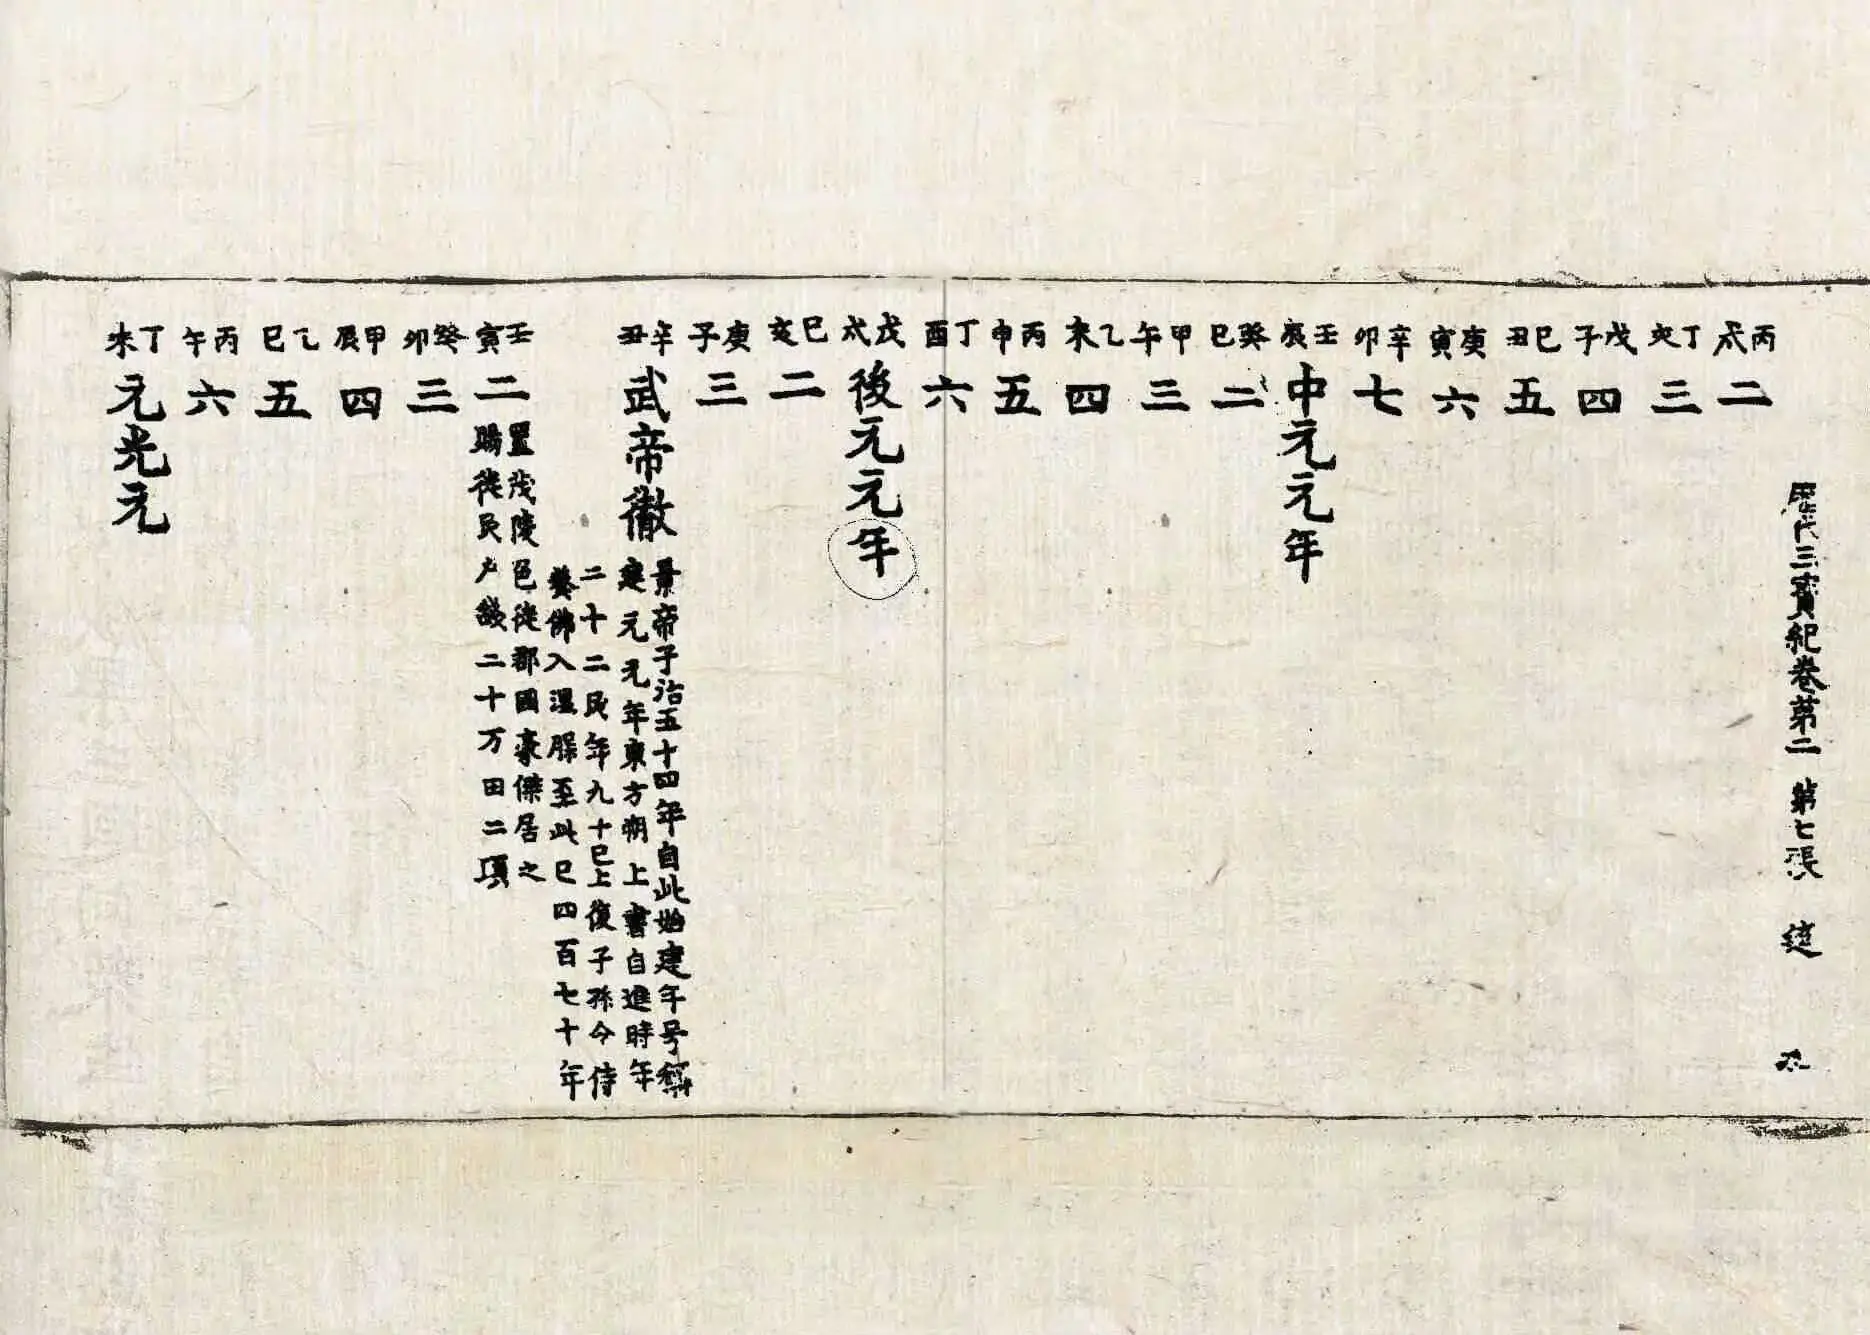 歷代三寶紀卷第二 第七張
丙戌 二
丁亥 三
戊子 四
己丑 五
庚寅 六
辛卯 七
壬辰 中元元年
癸巳 二
甲午 三
乙未 四
丙申 五
丁酉 六
戊戌 後元元年
己亥 二
庚子 三
辛丑 武帝徹
景帝子治五十四年自此始建年号稱
建元元年東方朔上書自進時年
二十二民年九十已上復子孫令侍
養佛入湼槃至此已四百七十年
壬寅 二
置茂陵邑徙郡國豪傑居之
賜徙民户錢二十万田二項
癸卯 三
甲辰 四
乙巳 五
丙午 六
丁未 元光元